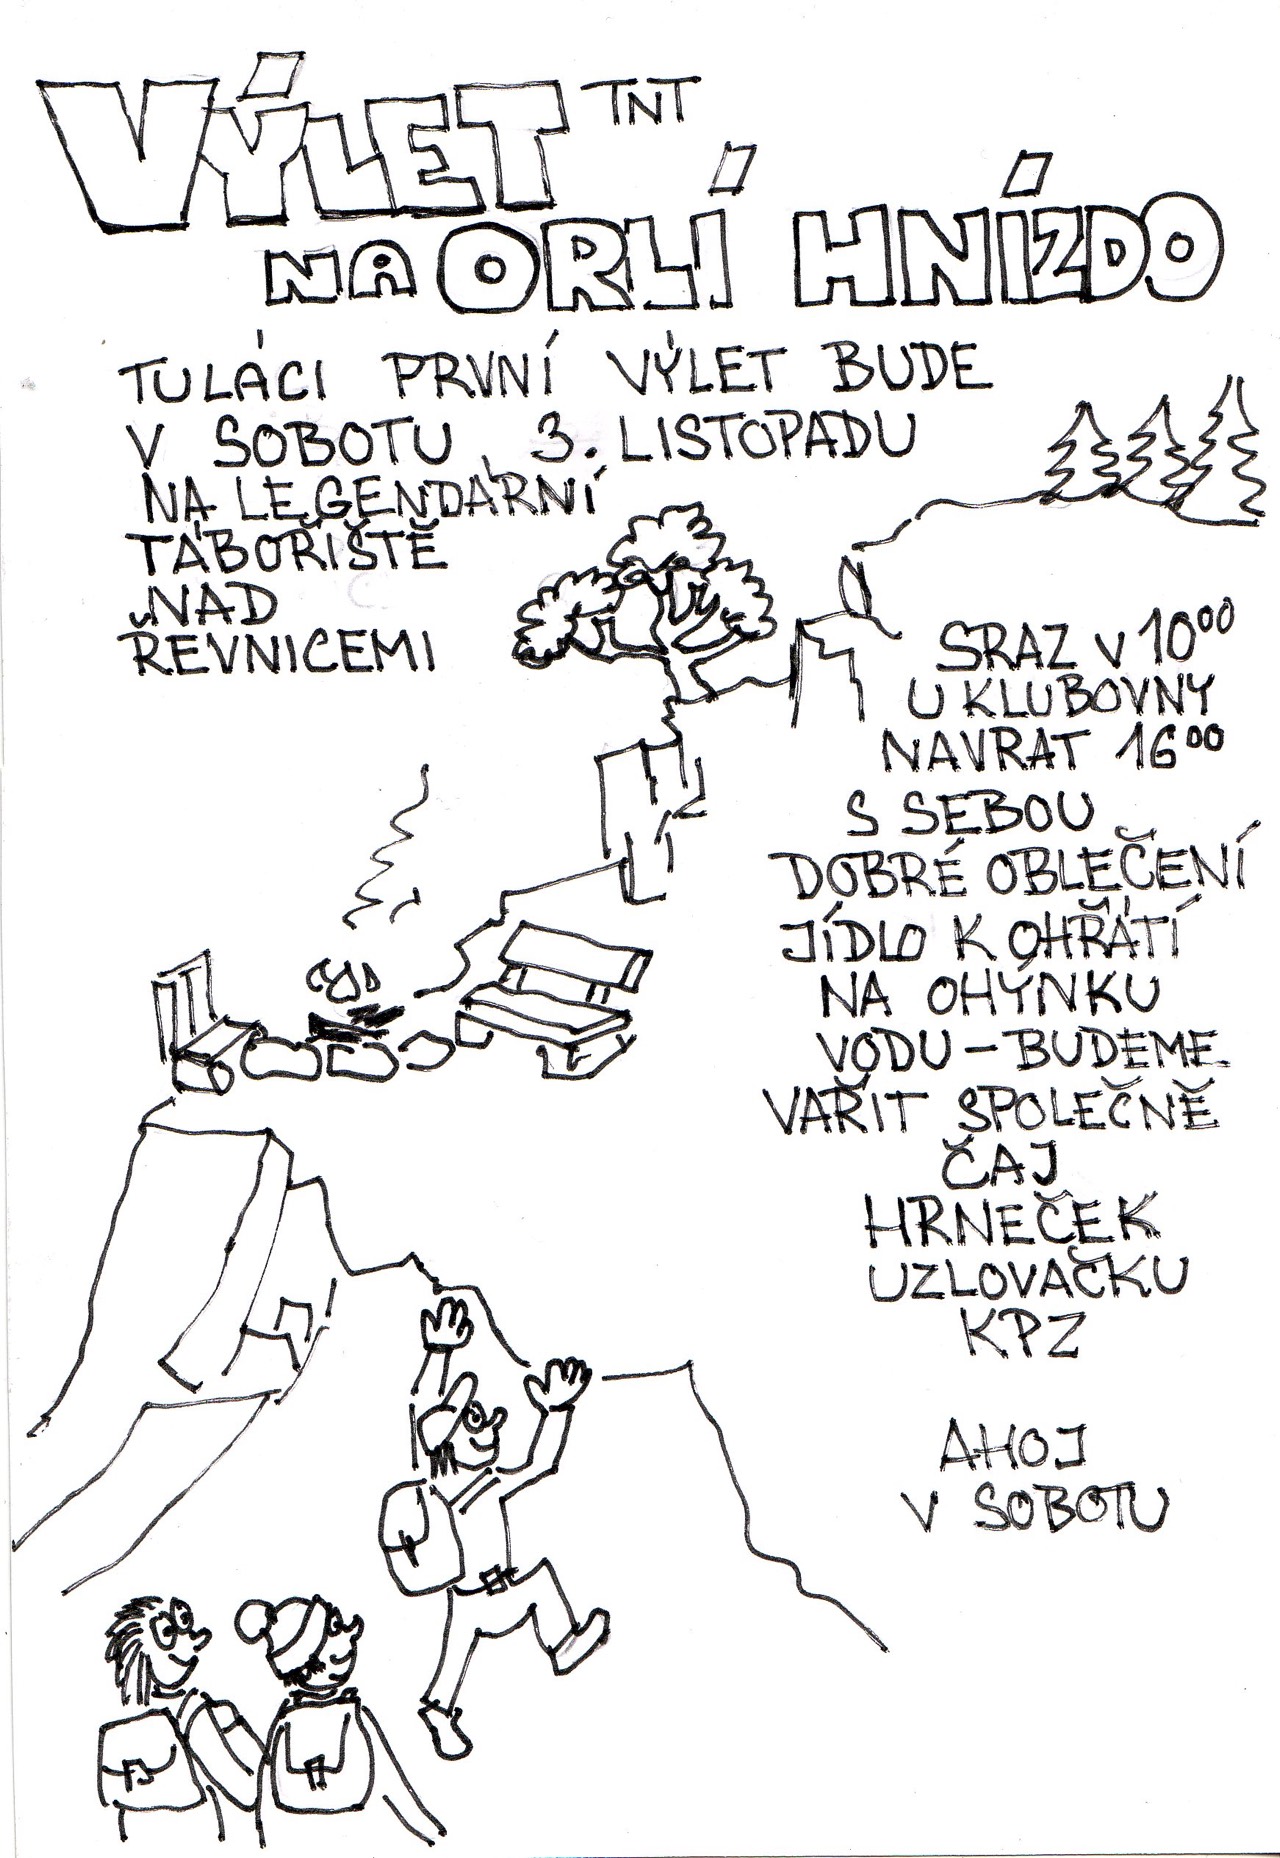 VÝLET TNT
NA ORLÍ HNÍZDO
TULÁCI PRVNÍ VÝLET BUDE
V SOBOTU 3. LISTOPADU
NA LEGENDÁRNÍ
TÁBOŘIŠTĚ
NAD
ŘEVNICEMI
SRAZ V 10⁰⁰
U KLUBOVNY
NAVRAT 16⁰⁰
S SEBOU
DOBRÉ OBLEČENÍ
JÍDLO K OHŘÁTÍ
NA OHÝNKU
VODU - BUDEME
VAŘIT SPOLEČNĚ
ČAJ
HRNEČEK
UZLOVAČKU
KPZ
AHOJ
V SOBOTU